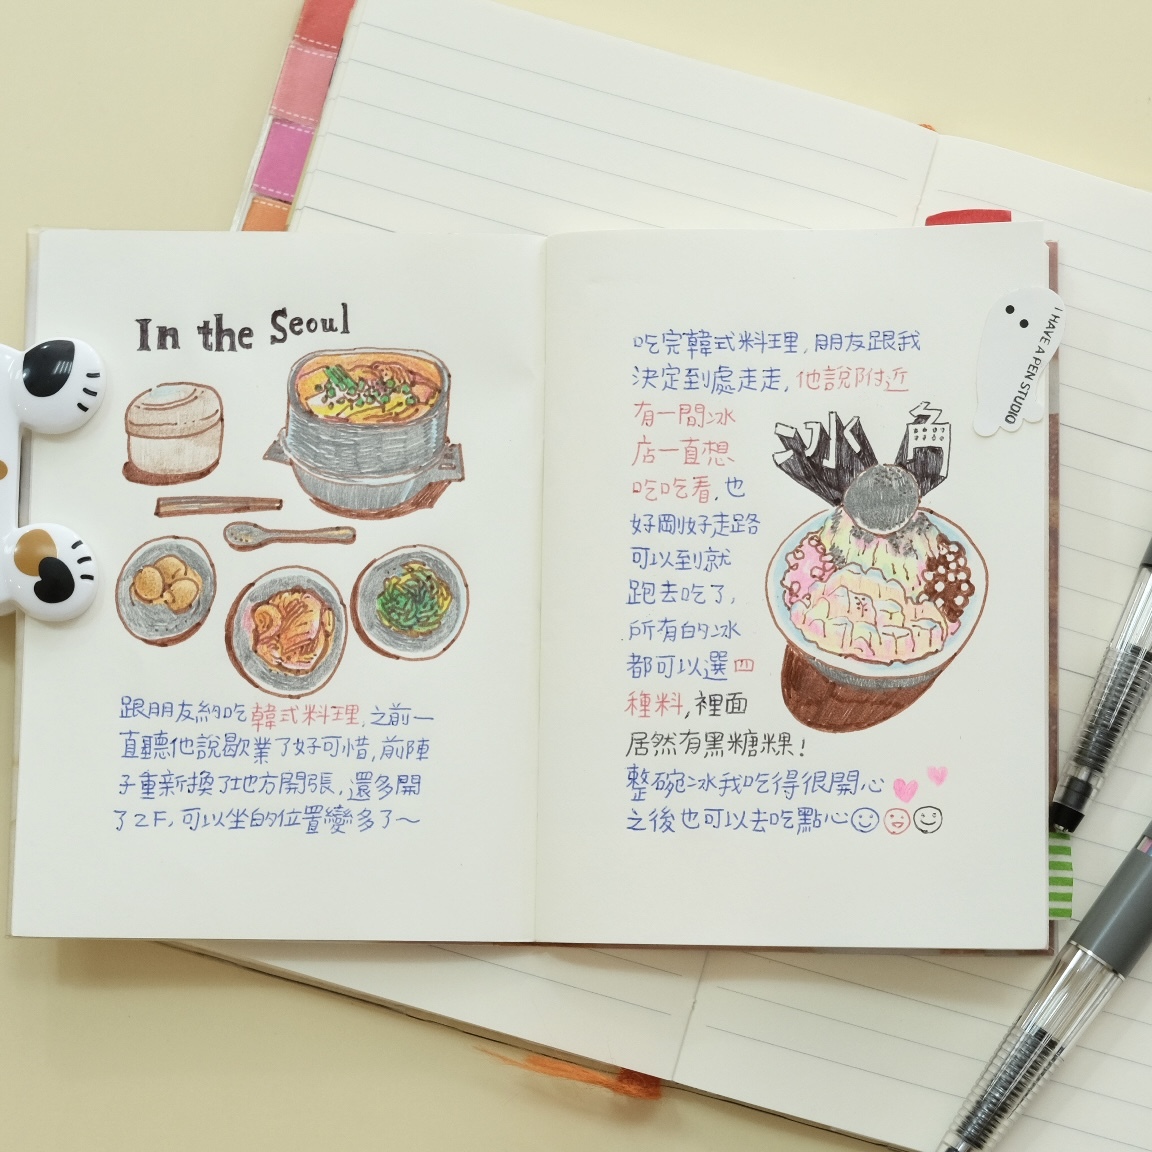 In the Seoul
跟朋友約吃韓式料理,之前一
直聽他說歇業了好可惜,前陣
子重新換了地方開張,還多開
了2F,可以坐的位置變多了～
吃完韓式料理,朋友跟我
決定到處走走,他說附近
有一間冰
店一直想
吃吃看,也
好剛好走路
可以到就
跑去吃了,
所有的冰
都可以選四
種料,裡面
居然有黑糖粿!
整碗冰我吃得很開心
之後也可以去吃點心
冰角
I HAVE A PEN STUDIO